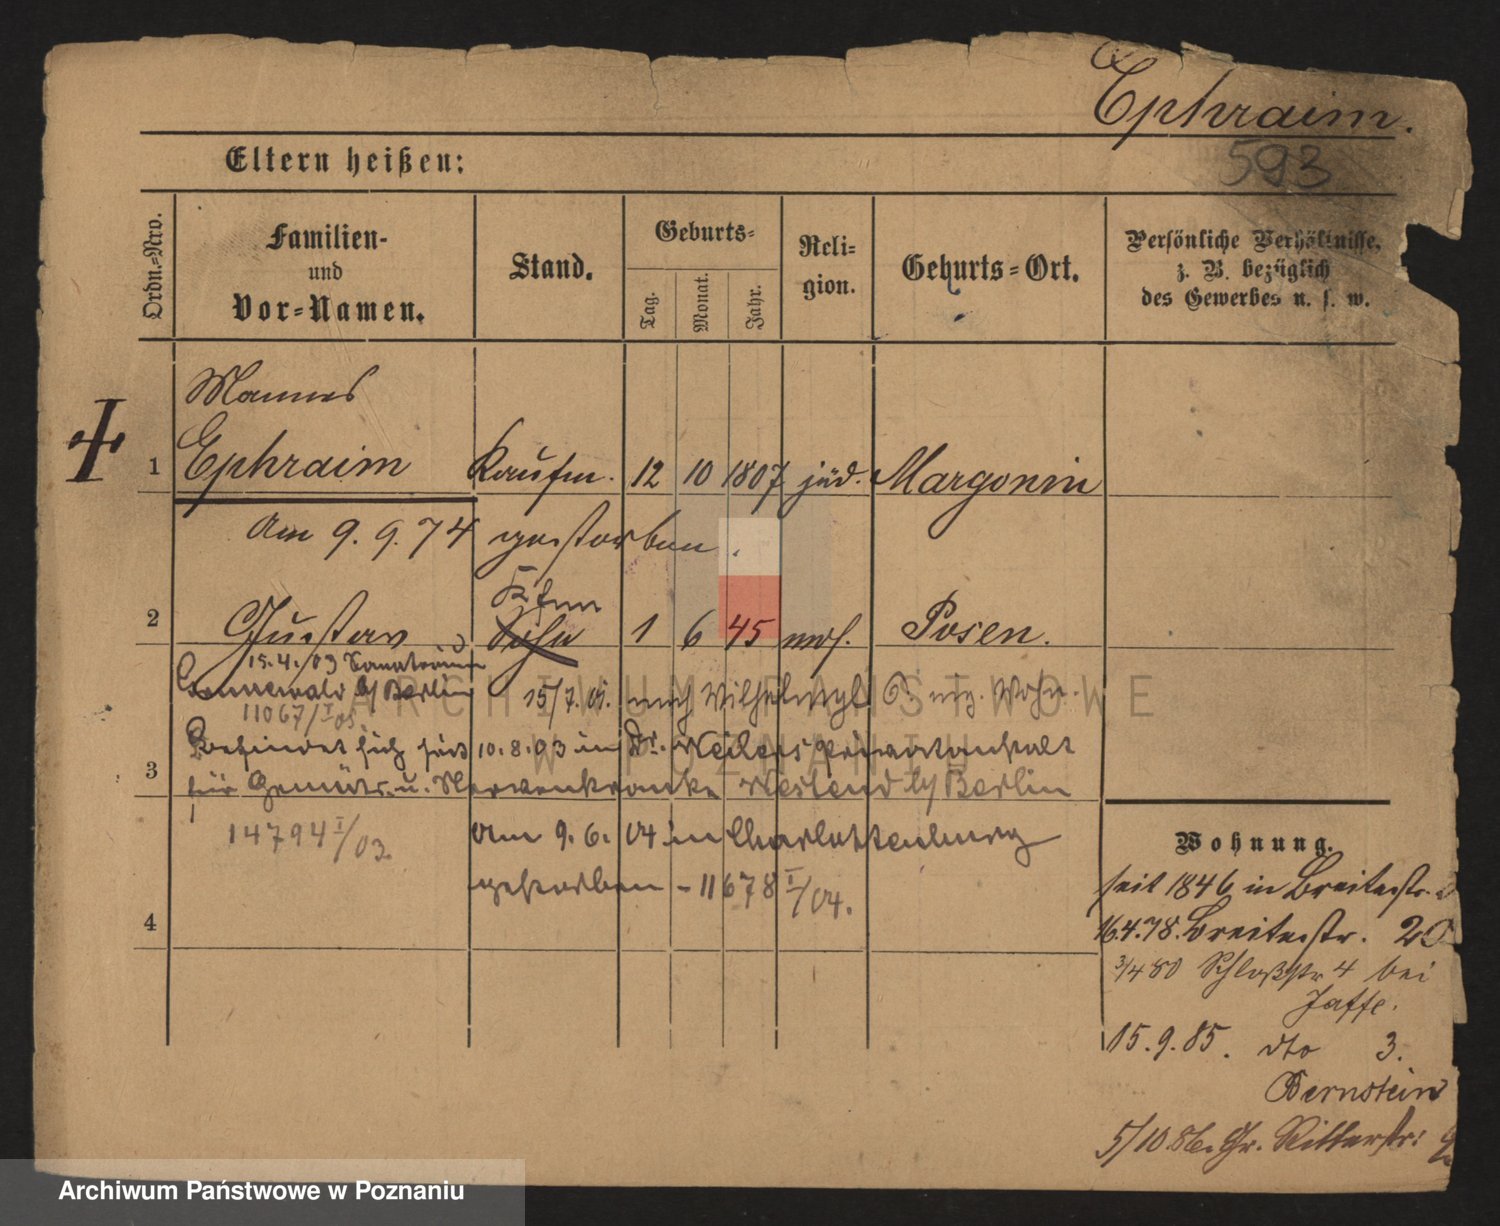 Ephraim.
593
Eltern heißen:
Ordn.-Nro.
Familien-
und
Vor-Namen.
Stand.
Geburts-
Tag.
Monat.
Jahr.
Reli-
gion.
Geburts-Ort.
Persönliche Verhältnisse,
z. B. bezüglich
des Gewerbes u. s. w.
Mannes
1 Ephraim Kaufm. 12 10 1807 jüd. Margonin
Am 9. 9. 74 gestorben.
Kfm
2 Gustav Sohn 1 6 45 mos. Posen.
15.4.03 Sanatorium
b/Berlin 15/7. 01. nach
11067/I 03.
Befindet sich seit 10.8.03 in Dr. Weilers Privatanstalt
3 für Gemüts- u. Nervenkranke Westend b/Berlin
14794 I/03.
Am 9. 6. 04 in Charlottenburg
gestorben - 11678 I/04.
4
Wohnung.
seit 1846 in Breitestr.
16.4.78. Breitestr. 20
3/4 80 Schloßstr 4 bei
Jaffe.
15.9.85. dto 3.
Bernstein
5/10 86. Gr. Ritterstr:
ARCHIWUM PAŃSTWOWE
W POZNANIU
Archiwum Państwowe w Poznaniu